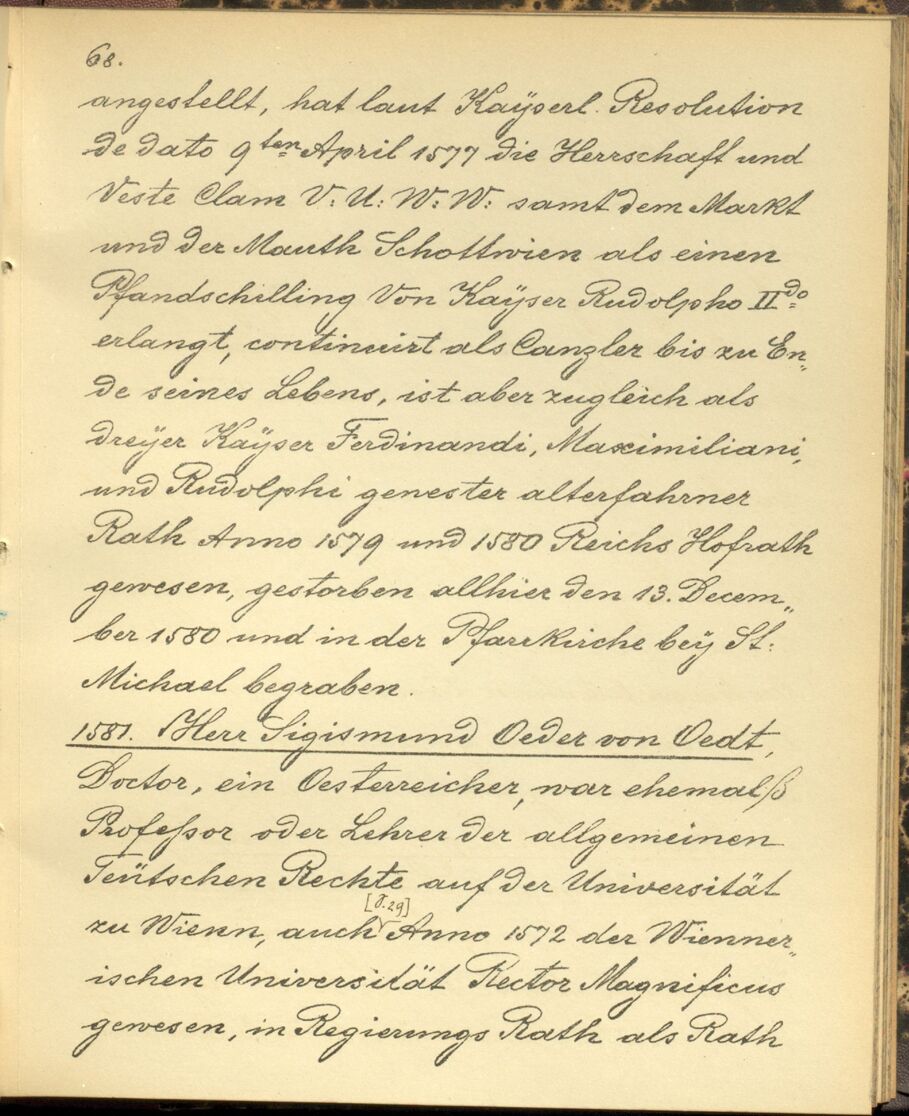 68.
angestellt, hat laut Kaÿserl. Resolution
de dato 9ten April 1577 die Herrschaft und
Veste Clam V: U: W: W: samt dem Markt
und der Mauth Schottwien als einen
Pfandschilling Von Kaÿser Rudolpho IIdo
erlangt, continuirt als Canzler bis zu En„
de seines Lebens, ist aber zugleich als
dreÿer Kaÿser Ferdinandi, Maximiliani,
und Rudolphi gewester alterfahrner
Rath Anno 1579 und 1580 Reichs Hofrath
gewesen, gestorben allhier den 13. Decem„
ber 1580 und in der Pfarrkirche beÿ St:
Michael begraben.
1581. Herr Sigismund Oeder von Oedt,
Doctor, ein Oesterreicher, war ehemalß
Profeßor oder Lehrer der allgemeinen
Teütschen Rechte auf der Universität
[S. 29]
zu Wienn, auch Anno 1572 der Wienner„
ischen Universität Rector Magnificus
gewesen, in Regierungs Rath als Rath